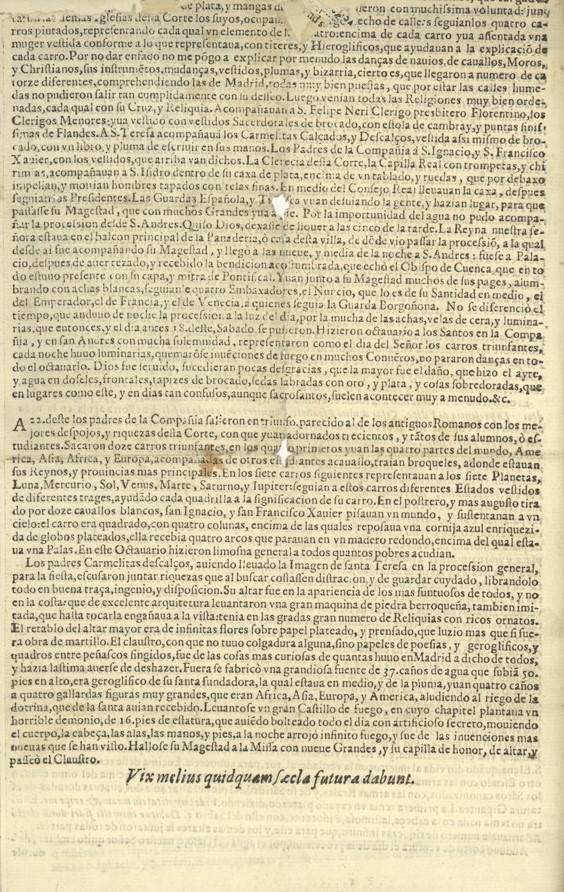 de plata, y mangas d
ieron con muchissima voluntad: junt
demas Iglesias desta Corte los suyos, ocupan
echo de calle: seguianlos quatro ca-
rros pintados, representando cada qual vn elemento de l
atro: encima de cada carro yua assentada vna
muger vestida conforme a lo que representaua, con titeres, y Hieroglificos, que ayudauan a la explicació de
cada carro. Por no dar enfado me pógo a explicar por menudo las danças de nauios, de cauallos, Moros,
y Christianos, sus instrumétos, mudanças, vestidos, plumas, y bizarria, cierto es, que llegaron a numero de ca
torze diferentes, comprehendiendo las de Madrid, todas muy bien puestas, que por estar las calles hume-
das no pudieron salir tan cumplidamente con su desseo. Luego venian todas las Religiones muy bien orde-
nadas, cada qual con su Cruz, y Reliquia. Acompañauan a S. Felipe Neri Clerigo presbitero Florentino, los
Clerigos Menores: yua vestido con vestidos Sacerdotales de brocado, con esola de cambray, y puntas finis
simas de Flandes. A S. Teresa acompañauá los Carmelitas Calçados, y Descalços, vestida assi mismo de bro-
cado, con vn libro, y pluma de escriuir en sus manos. Los Padres de la Compañia a S. Ignacio, y S. Francisco
Xauier, con los vestidos, que arriba van dichos. La Clerecia desta Corte, la Capilla Real con trompetas, y chi
rimias, acompañauan a S. Isidro dentro de su caxa de plata, encima de vn tablado, y ruedas, que por debaxo
impelian, y mouian hombres tapados con telas finas. En medio del Consejo Real lleuauan la caxa, despues
seguian los Presidentes. Las Guardas Española, y T sca yuan desuiando la gente, y hazian lugar, para que
passasse su Magestad, que con muchos Grandes yua de e. Por la importunidad del agua no pudo acompa-
ñar la procession desde S. Andres. Quiso Dios, dexasse de llouer a las cinco de la tarde. La Reyna nuestra se-
ñora estaua en el balcon principal de la Panaderia, ò casa desta villa, de dóde vio passar la processió, a la qual
desde ai fue acompañando su Magestad, y llegò a las nueue, y media de la noche a S. Andres: fuese a Pala-
cio, despues de aner rezado, y recebido la bendicion acostumbrada, que echò el Obispo de Cuenca, que en to
do estuuo presente con su capa, y mitra de Pontifical. Yuan junto a su Magestad muchos de sus pages, alum-
brando con achas blancas, seguian le quatro Embaxadores, el Nuncio, que lo es de su Santidad en medio, el
del Emperador, el de Francia, y el de Venecia, a quienes seguia la Guarda Borgoñona. No se diferenciò el
tiempo, que anduuo de noche la procession, a la luz del dia, por la mucha de las achas, velas de cera, y lumina-
rias, que entonces, y el dia antes 18. deste, Sabado se pusieron. Hizieron octauario a los Santos en la Compa
ñia, y en san Andres con mucha solemnidad, representaron como el dia del Señor los carros triunfantes,
cada noche huuo luminarias, quemaróse inuéciones de fuego en muchos Conuétos, no pararon danças en to-
do el octauario. Dios fue seruido, sucedieran pocas desgracias, que la mayor fue el daño, que hizo el ayre,
y agua en doseles, frontales, tapizes de brocado, sedas labradas con oro, y plata, y cosas sobredoradas, que
en lugares como este, y en dias tan confusos, aunque sacrosantos, suelen acontecer muy a menudo. &c.
A 22. deste los padres de la Compañia salieron en triunfo, parecido al de los antiguos Romanos con los me-
jores despojos, y riquezas desta Corte, con que yuan adornados treciento s, y tátos de sus alumnos, ò es-
tudiantes. Sacaron doze carros triunfantes, en los qu primeros yuan las quatro partes del mundo, Ame
rica, Asia, Africa, y Europa, acompañadas de otros est diantes acauallo, traian broqueles, adonde estauan
sus Reynos, y prouincias mas principales. En los siete carros siguientes representauan a los siete Planetas,
Luna, Mercurio, Sol, Venus, Marte, Saturno, y Iupiter: seguian a estos carros diferentes Estados vestidos
de diferentes trages, ayudádo cada quadrilla a la significacion de su carro. En el postrero, y mas augusto tira
do por doze cauallos blancos, san Ignacio, y san Francisco Xauier pisauan vn mundo, y sustentauan a vn
cielo: el carro era quadrado, con quatro colunas, encima de las quales reposaua vna cornija azul enriquezi-
da de globos plateados, ella recebia quatro arcos que parauan en vn madero redondo, encima del qual esta-
ua vna Palas. En este Octauario hizieron limosna general a todos quantos pobres acudian.
Los padres Carmelitas descalços, auiendo lleuado la Imagen de santa Teresa en la procession general,
para la fiesta, escusaron juntar riquezas que al buscar costassen distracion, y de guardar cuydado, librandolo
todo en buena traça, ingenio, y disposicion. Su altar fue en la apariencia de los mas suntuosos de todos, y no
en la costa: que de excelente arquitetura leuantaron vna gran maquina de piedra berroqueña, tambien imi-
tada, que hasta tocarla engañaua a la vista: tenia en las gradas gran numero de Reliquias con ricos ornatos.
El retablo del altar mayor era de infinitas flores sobre papel plateado, y prensado, que luzio mas que si fue-
ra obra de martillo. El claustro, con que no tuuo colgadura alguna, sino papeles de poesias, y geroglificos, y
quadros entre peñascos fingidos, fue de las cosas mas curiosas de quantas huuo en Madrid a dicho de todos,
y hazia lastima auerse de deshazer. Fuera se fabricò vna grandiosa fuente de 37. caños de agua que subiá 50.
pies en alto, era geroglifico de su santa fundadora, la qual estaua en medio, y de la pluma, yuan quatro caños
a quatro gallardas figuras muy grandes, que eran Africa, Asia, Europa, y America, aludiendo al riego de la
dotrina, que de la santa auian recebido. Leuantose vn gran Castillo de fuego, en cuyo chapitel plantaua vn
horrible demonio, de 16. pies de estatura, que auiédo bolteado todo el dia con artificioso secreto, mouiendo
el cuerpo, la cabeça, las alas, las manos, y pies, a la noche arrojò infinito fuego, y fue de las inuenciones mas
nueuas que se han visto. Hallose su Magestad a la Missa con nueue Grandes, y su capilla de honor, de altar, y
passeò el Claustro.
Vix melius quidquam sæcla futura dabunt.